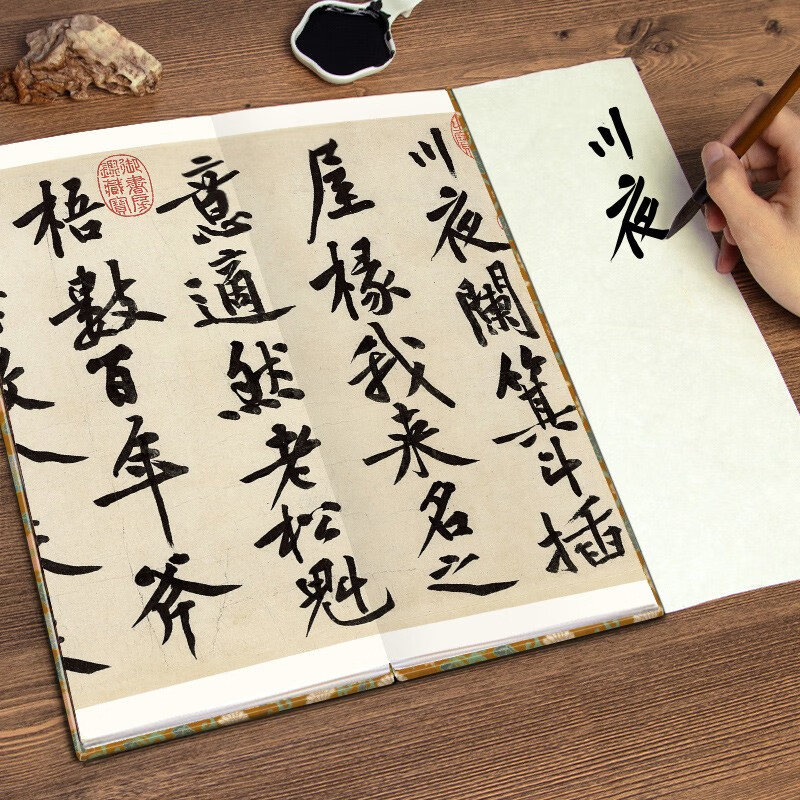 川夜
川夜闌箕斗插
屋椽我来名之
意適然老松魁
梧數百年斧
御書房
鑒藏寶